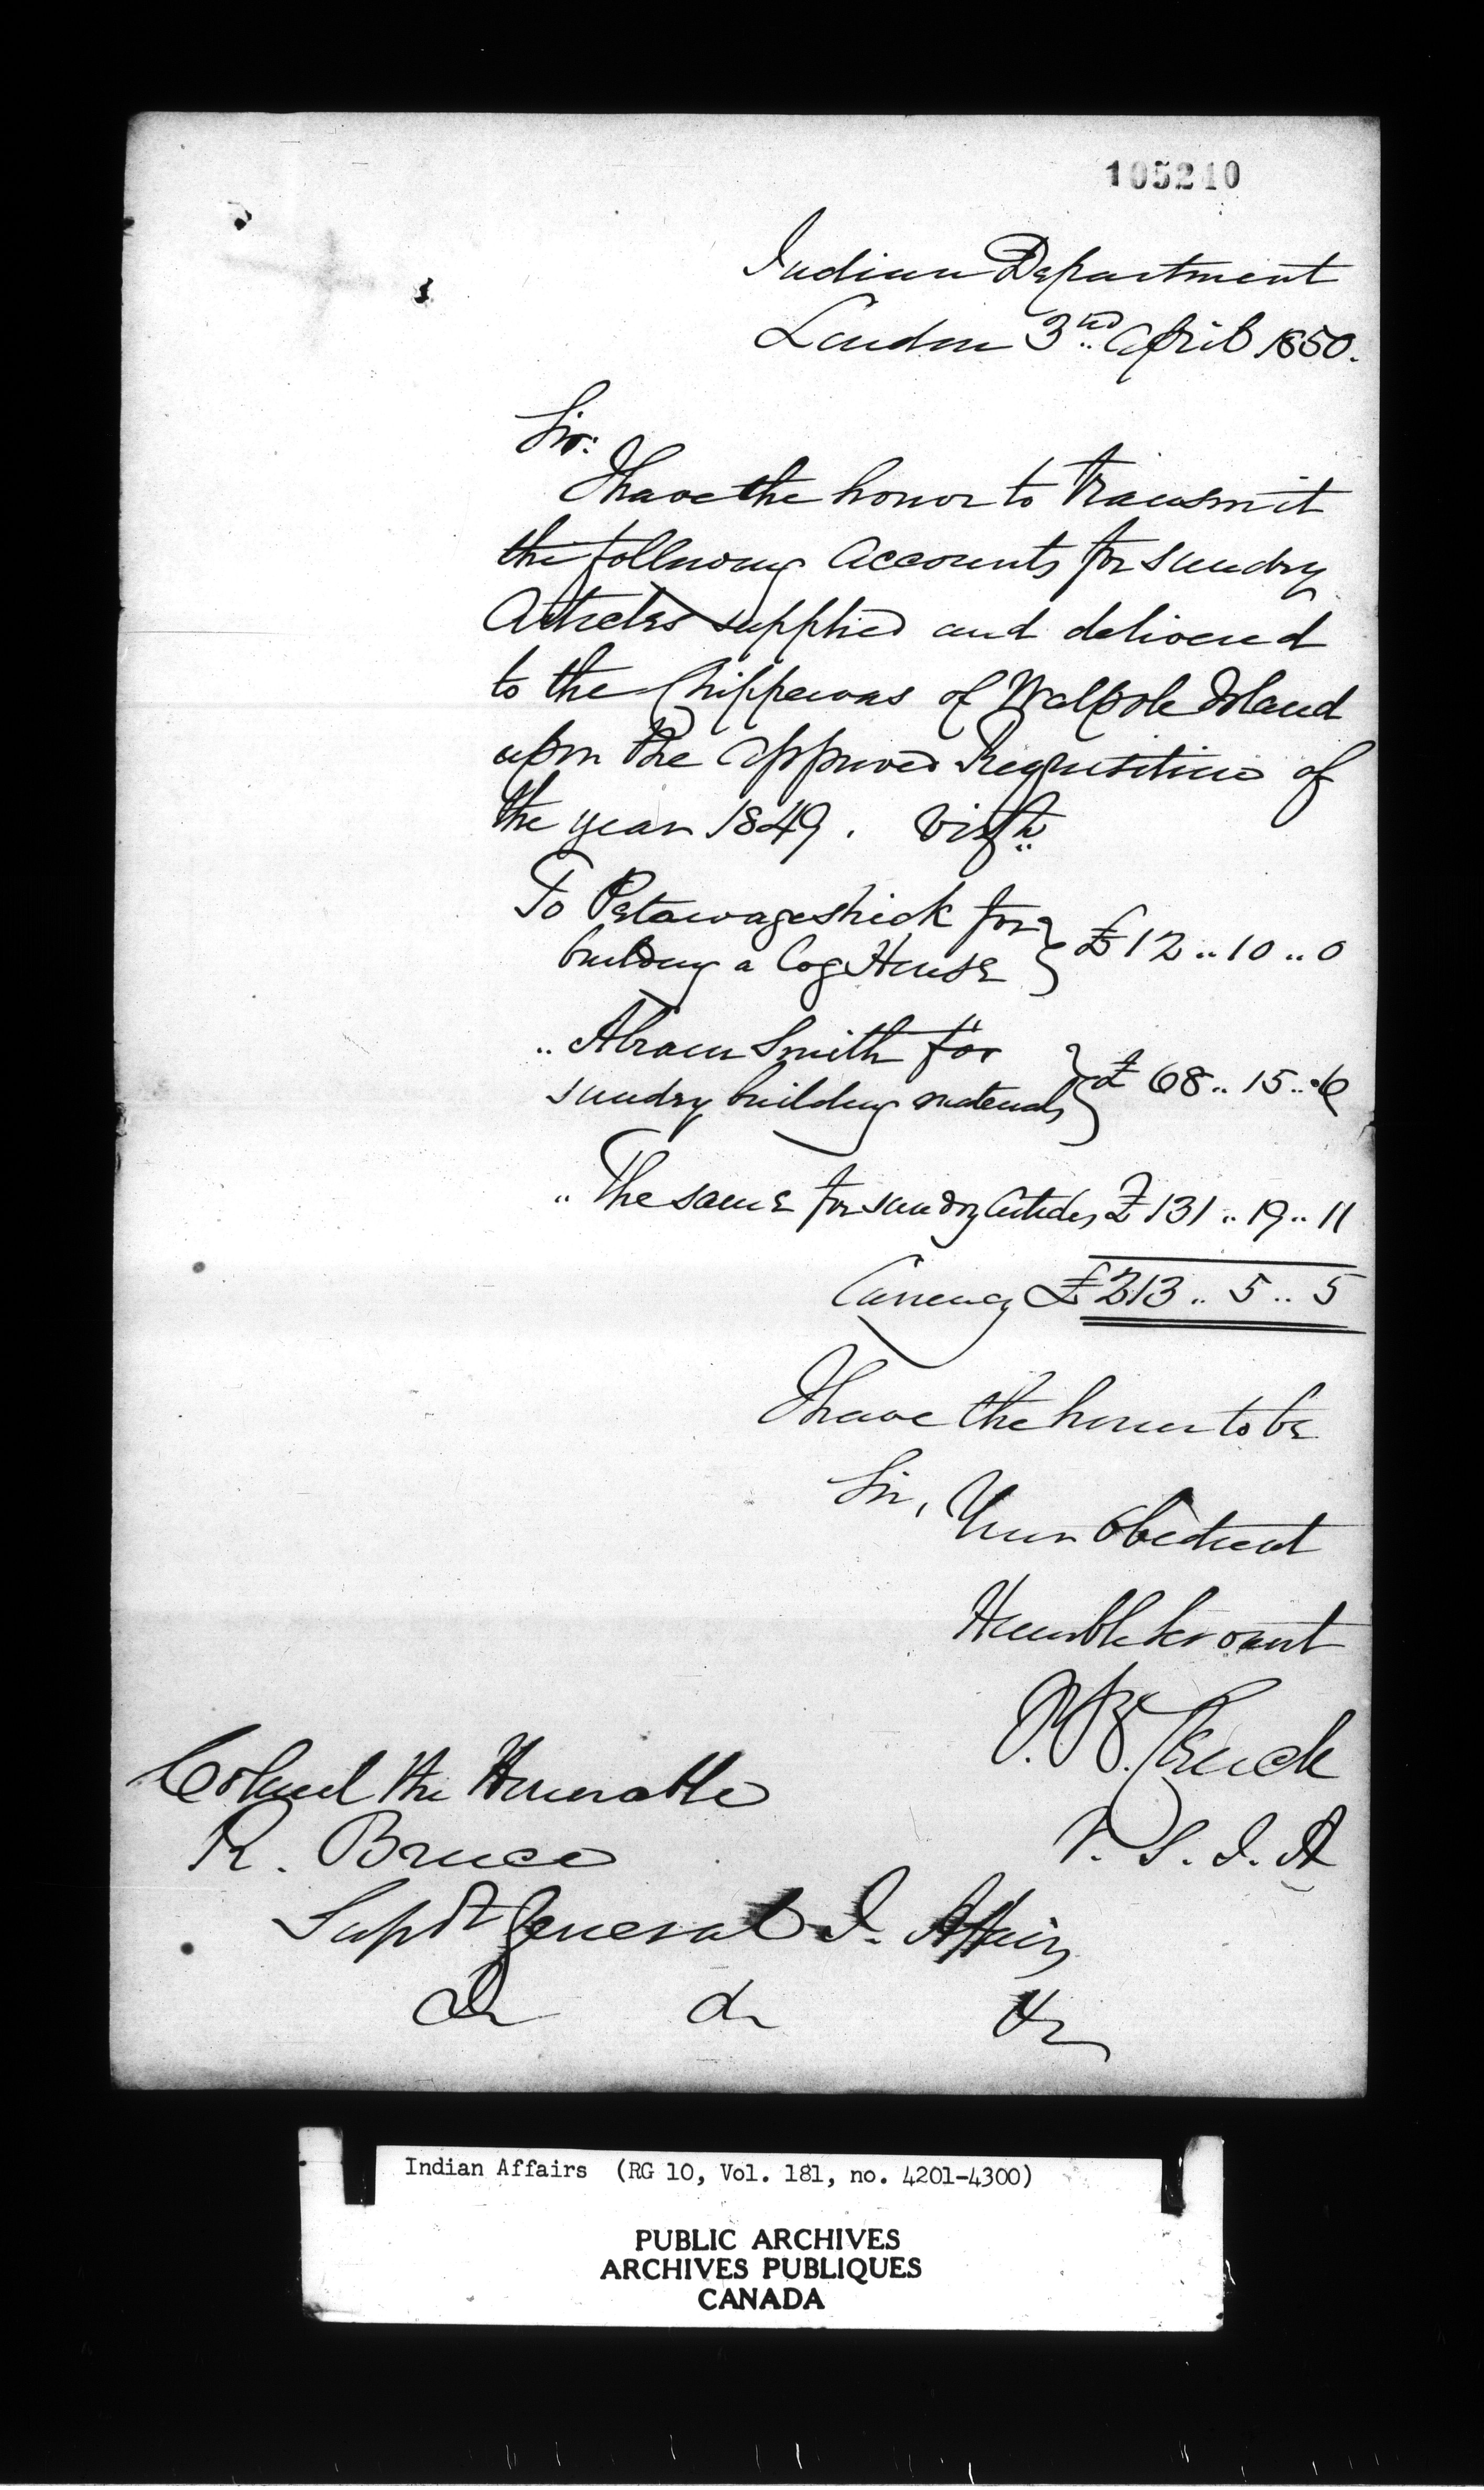 105240
Indian Department
London 3rd April 1850.
Sir:
I have the honor to transmit
the following Accounts for sundry
Articles supplied and delivered
to the Chippewas of Walpole Island
upon the approved Requisition of
the year 1849. Vizt
To Petawageshick for
building a Log House } £12..10..0
.. Abram Smith for
sundry building materials } £68..15..6
.. The same for sundry Articles £131..19..11
Currency £213..5..5
I have the honor to be
Sir, Your obedient
Humble Servant
Clench
V. S. I. A
Colonel the Honorable
R. Bruce
Supdt General I. Affairs
Indian Affairs (RG 10, Vol. 181, no. 4201-4300)
PUBLIC ARCHIVES
ARCHIVES PUBLIQUES
CANADA